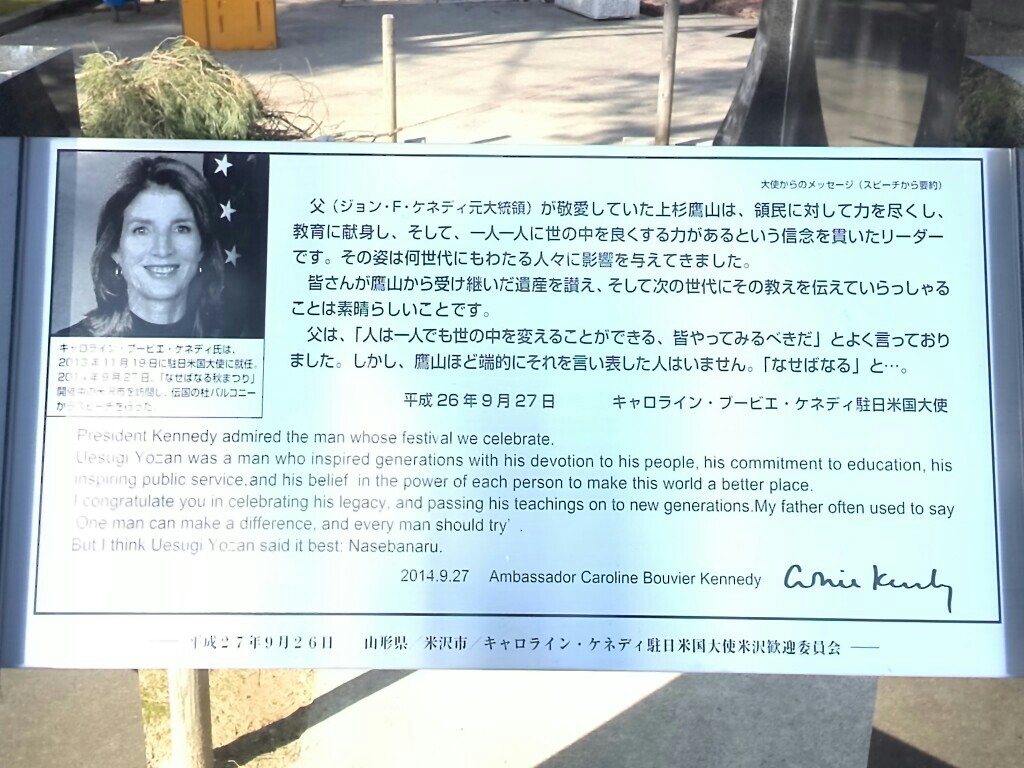 大使からのメッセージ（スピーチから要約）
父（ジョン・F・ケネディ元大統領）が敬愛していた上杉鷹山は、領民に対して力を尽くし、
教育に献身し、そして、一人一人に世の中を良くする力があるという信念を貫いたリーダー
です。その姿は何世代にもわたる人々に影響を与えてきました。
皆さんが鷹山から受け継いだ遺産を讃え、そして次の世代にその教えを伝えていらっしゃる
ことは素晴らしいことです。
父は、「人は一人でも世の中を変えることができる、皆やってみるべきだ」とよく言っており
ました。しかし、鷹山ほど端的にそれを言い表した人はいません。「なせばなる」と…。
平成26年9月27日 キャロライン・ブービエ・ケネディ駐日米国大使
キャロライン・ブービエ・ケネディ氏は、
2013年11月19日に駐日米国大使に就任。
2014年9月27日、「なせばなる秋まつり」
開催中の米沢市を訪問し、伝国の杜バルコニー
からスピーチを行った
President Kennedy admired the man whose festival we celebrate.
Uesugi Yozan was a man who inspired generations with his devotion to his people, his commitment to education, his
inspiring public service,and his belief in the power of each person to make this world a better place.
I congratulate you in celebrating his legacy, and passing his teachings on to new generations.My father often used to say
'One man can make a difference, and every man should try' .
But I think Uesugi Yozan said it best: Nasebanaru.
2014.9.27 Ambassador Caroline Bouvier Kennedy
平成27年9月26日 山形県／米沢市／キャロライン・ケネディ駐日米国大使米沢歓迎委員会